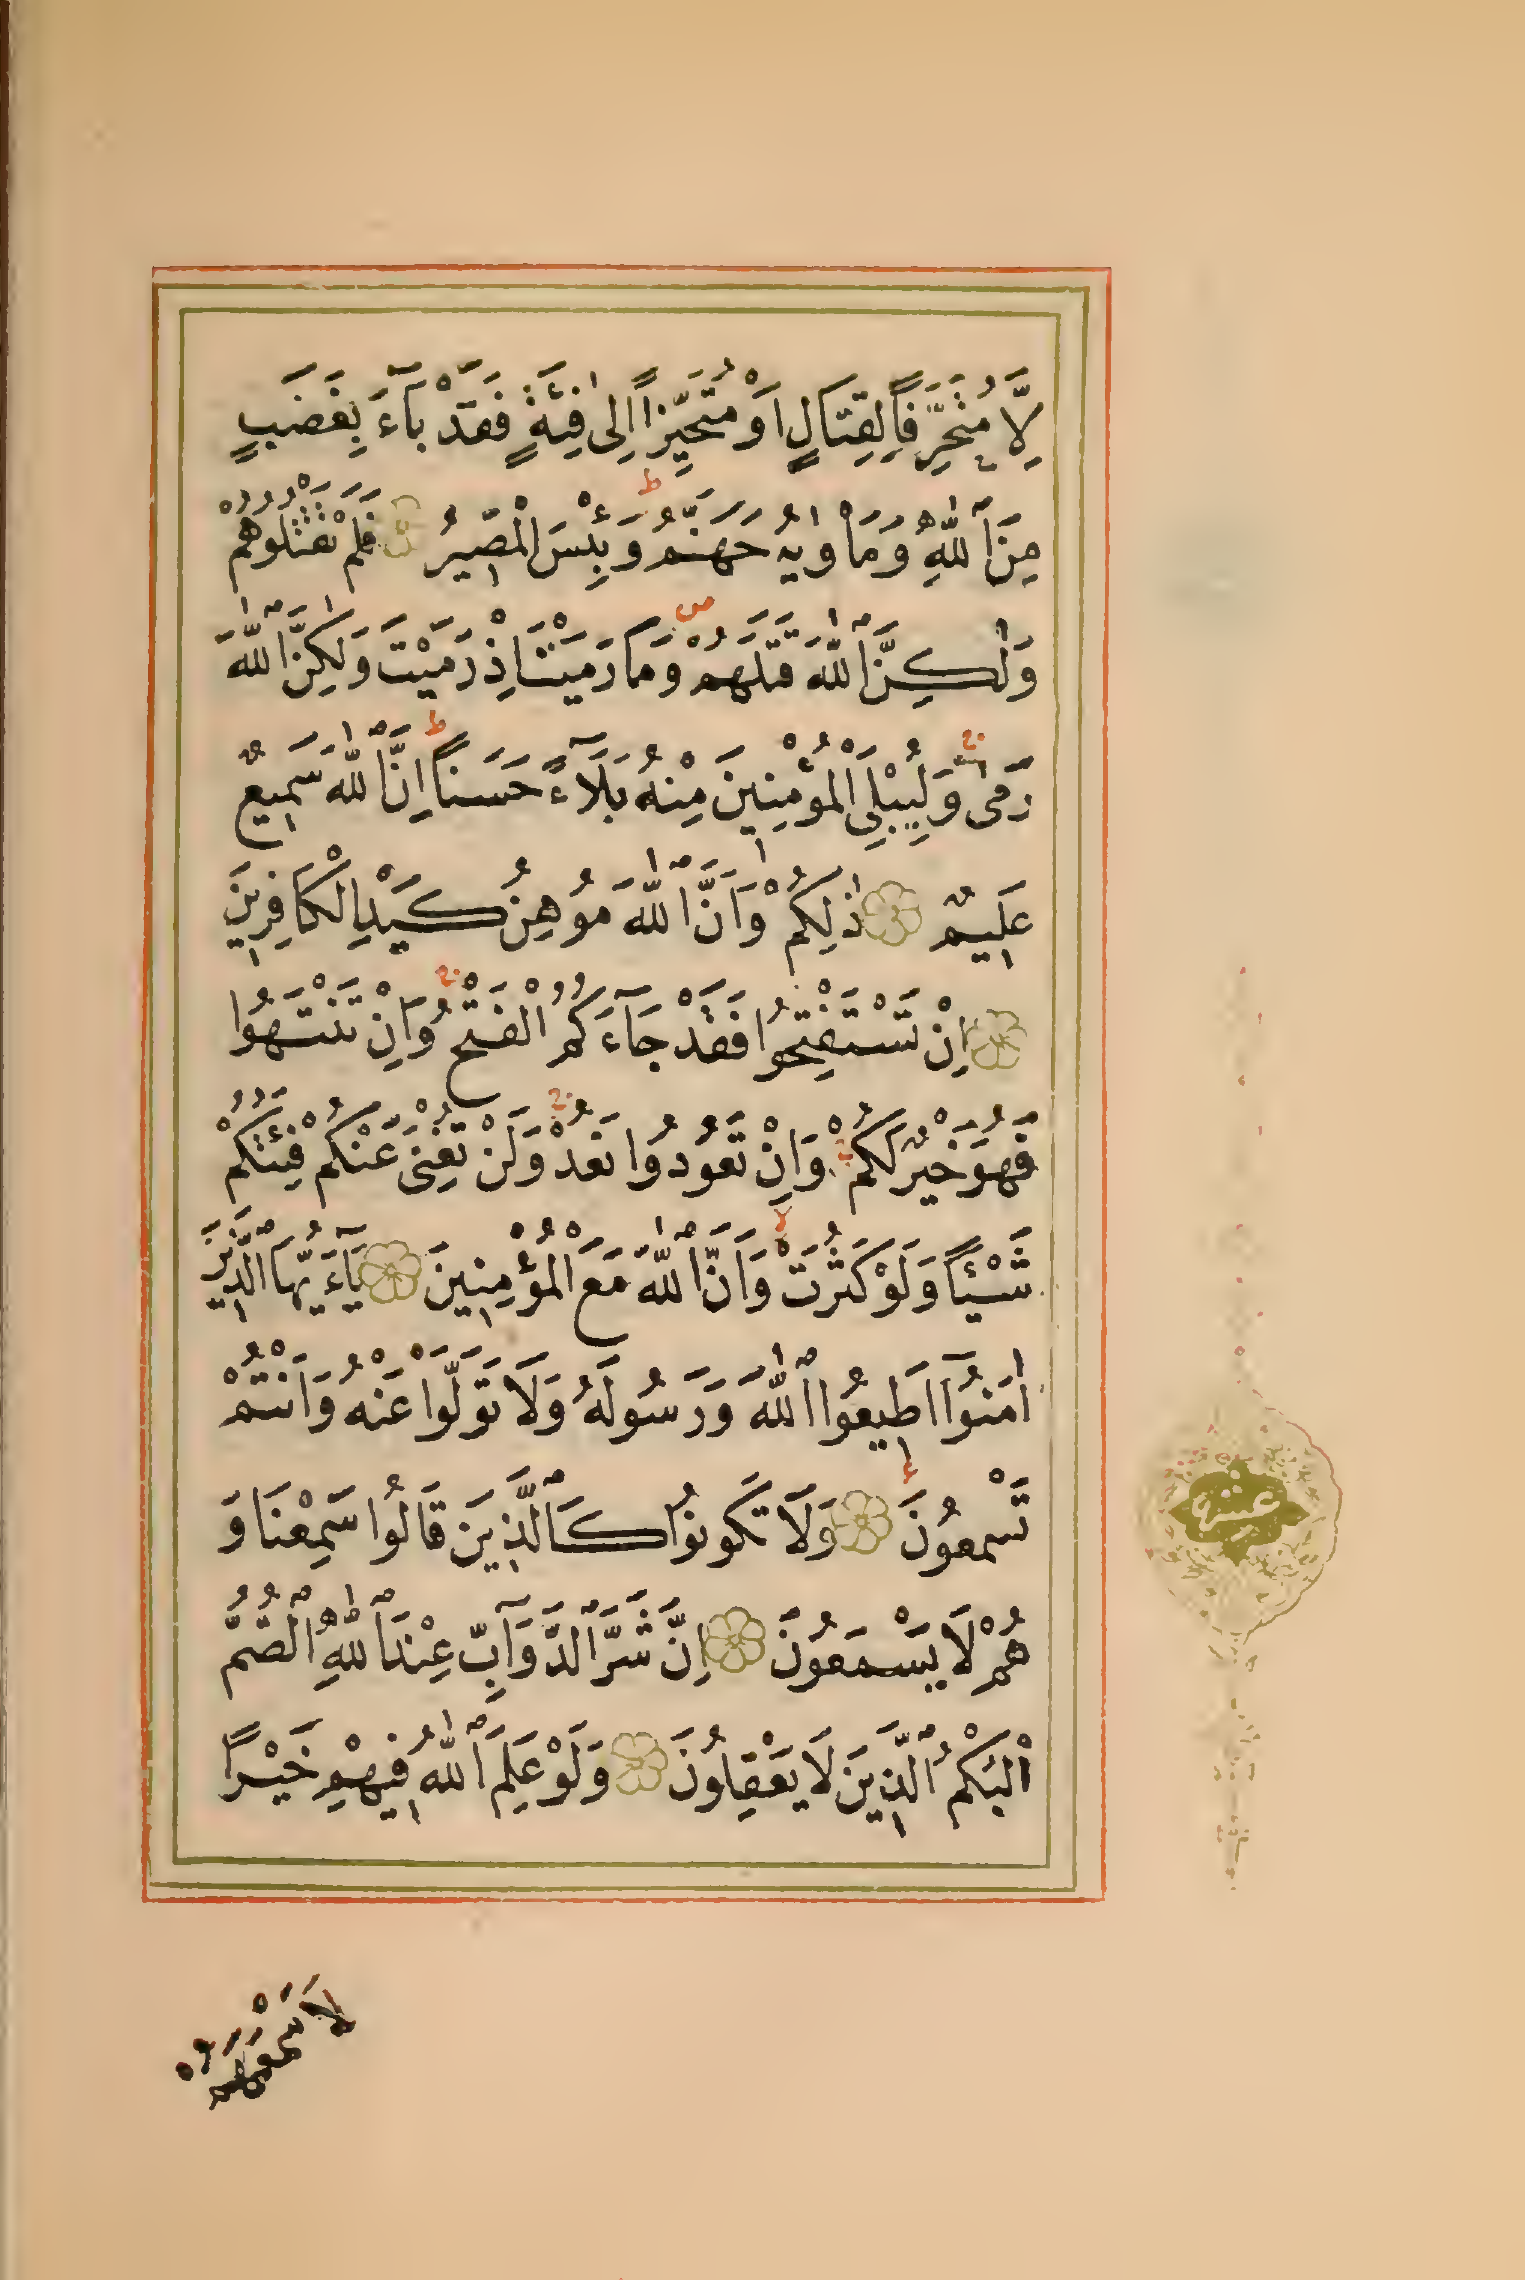 لَّا مُتَحَرِّفًا لِقِتَالٍ اَوْ مُتَحَيِّزًا اِلٰى فِئَةٍ فَقَدْ بَآءَ بِغَضَبٍ
مِنَ ٱللّٰهِ وَمَأْوٰيهُ جَهَنَّمُ ط وَبِئْسَ الْمَصِيرُ فَلَمْ تَقْتُلُوهُمْ
وَلٰكِنَّ ٱللّٰهَ قَتَلَهُمْ ص وَمَا رَمَيْتَ اِذْ رَمَيْتَ وَلٰكِنَّ ٱللّٰهَ
رَمٰى ج وَلِيُبْلِىَ الْمُؤْمِنِينَ مِنْهُ بَلَآءً حَسَنًا ط اِنَّ ٱللّٰهَ سَمِيعٌ
عَلِيمٌ ذٰلِكُمْ وَاَنَّ ٱللّٰهَ مُوهِنُ كَيْدِ الْكَافِرِينَ
اِنْ تَسْتَفْتِحُوا فَقَدْ جَآءَكُمُ الْفَتْحُ ج وَاِنْ تَنْتَهُوا
فَهُوَ خَيْرٌ لَكُمْ ج وَاِنْ تَعُودُوا نَعُدْ ج وَلَنْ تُغْنِىَ عَنْكُمْ فِئَتُكُمْ
شَيْئًا وَلَوْ كَثُرَتْ لا وَاَنَّ ٱللّٰهَ مَعَ الْمُؤْمِنِينَ يَآءَيُّهَا ٱلَّذِينَ
اٰمَنُوٓا اَطِيعُوا ٱللّٰهَ وَرَسُولَهُ وَلَا تَوَلَّوْا عَنْهُ وَاَنْتُمْ
تَسْمَعُونَ ء وَلَا تَكُونُوا كَٱلَّذِينَ قَالُوا سَمِعْنَا وَ
هُمْ لَا يَسْمَعُونَ اِنَّ شَرَّ ٱلدَّوَآبِّ عِنْدَ ٱللّٰهِ ٱلصُّمُّ
الْبُكْمُ ٱلَّذِينَ لَا يَعْقِلُونَ وَلَوْ عَلِمَ ٱللّٰهُ فِيهِمْ خَيْرًا
لَاَسْمَعَهُمْ
عشر